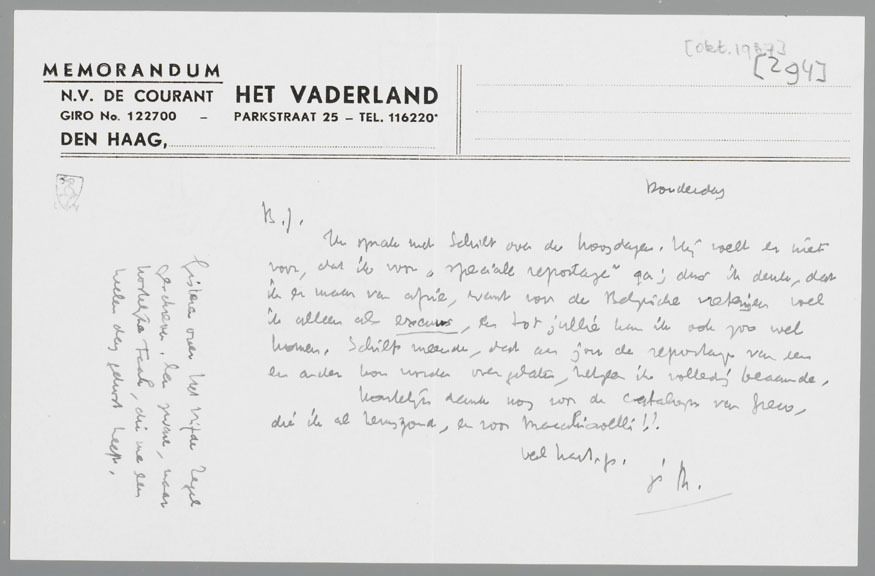 [okt. 1937]
[294]
MEMORANDUM
N.V. DE COURANT HET VADERLAND
GIRO No. 122700 – PARKSTRAAT 25 – TEL. 116220*
DEN HAAG,
Donderdag
B.J.
Ik sprak met Schilt over de hoogdagen. Hij voelt er niet
voor, dat ik voor „speciale reportage" ga; dus ik denk, dat
ik er maar van afzie, want voor de Belgische wel
ik alleen als excuus, en tot jullie kan ik ook zoo wel
komen. Schilt meende, dat aan jou de reportage van een
en ander kon worden overgelaten, hetgeen ik volledig beaamde.
Hartelijk dank nog voor de catalogus van
die ik al terugzond, en voor Macchiavelli!!
veel hart. gr.
je M.
Gisteren over het Vijfde Zegel
geschreven. Een, maar
hartelijke taak, die me een
heelen dag gekost heeft.